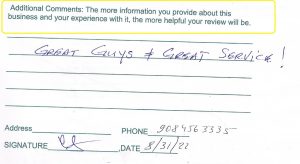 Additional Comments: The more information you provide about this
business and your experience with it, the more helpful your review will be.
GREAT GUYS & GREAT SERVICE!
Address PHONE 9084563335
SIGNATURE ,DATE 8/31/22